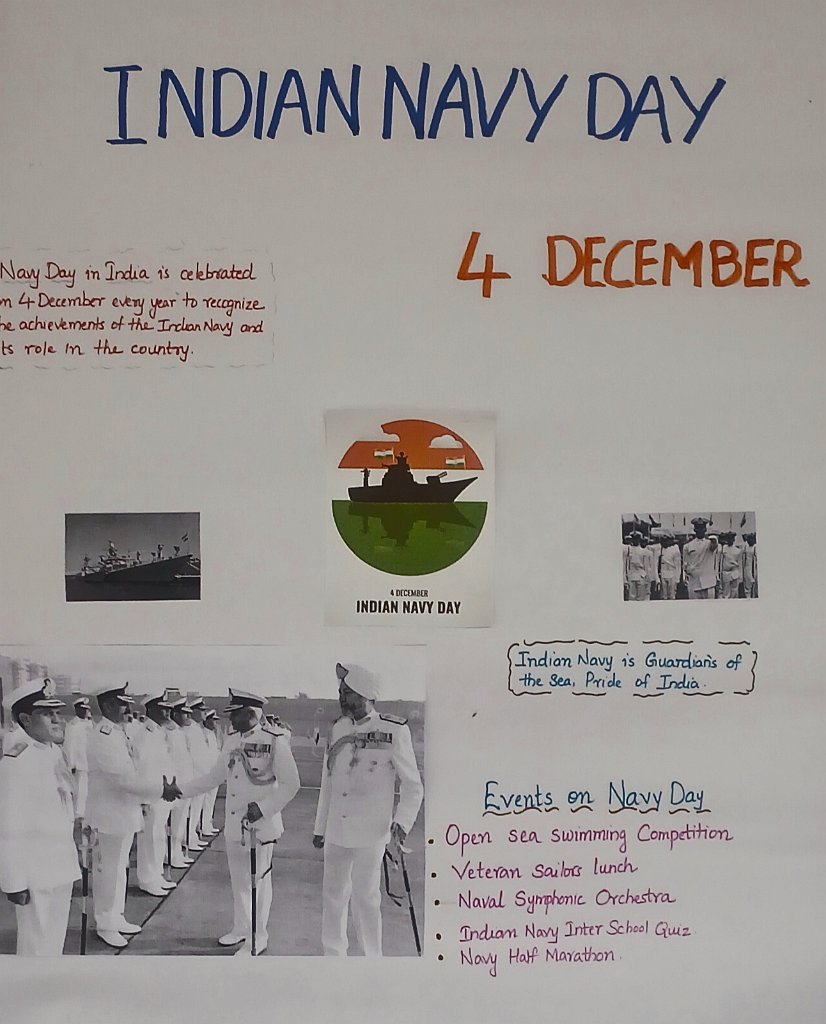 INDIAN NAVY DAY
4 DECEMBER
Navy Day in India is celebrated
n 4 December every year to recognize
he achievements of the Indian Navy and
ts role in the country.
4 DECEMBER
INDIAN NAVY DAY
Indian Navy is Guardian's of
the Sea, Pride of India.
Events on Navy Day
• Open sea swimming Competition
• Veteran Sailors lunch
• Naval Symphonic Orchestra
• Indian Navy Inter School Quiz
• Navy Half Marathon.